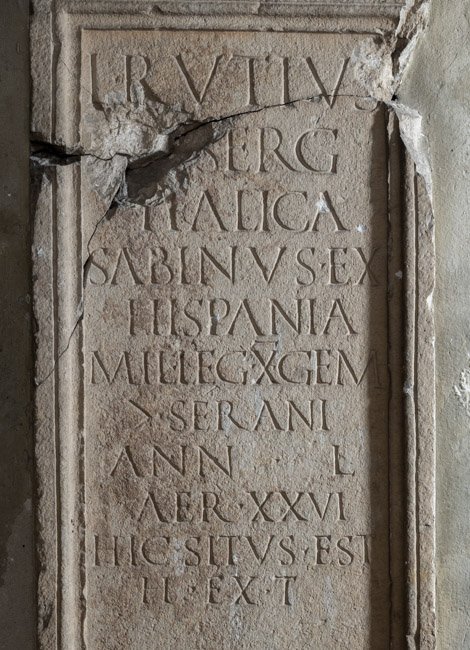 L·RVTIVS
SERG
ITALICA
SABINVS·EX
HISPANIA
MIL·LEG·X·GEM
> SERANI
ANN L
AER·XXVI
HIC·SITVS·EST
II·EX·T